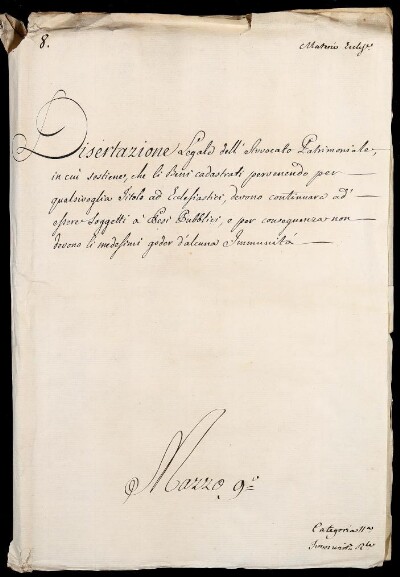 8.
Materie Eccles.
Disertazione Legale dell' Avvocato Patrimoniale,
in cui sostiene, che li Beni cadastrati pervenendo per
qualsivoglia Titolo ad Ecclesiastici, devono continuare ad'
essere soggetti a' Pesi Pubblici, e per conseguenza non
devono li medesimi goder d'alcuna Immunità
Mazzo 9º
Categoria 11ª
Immunità